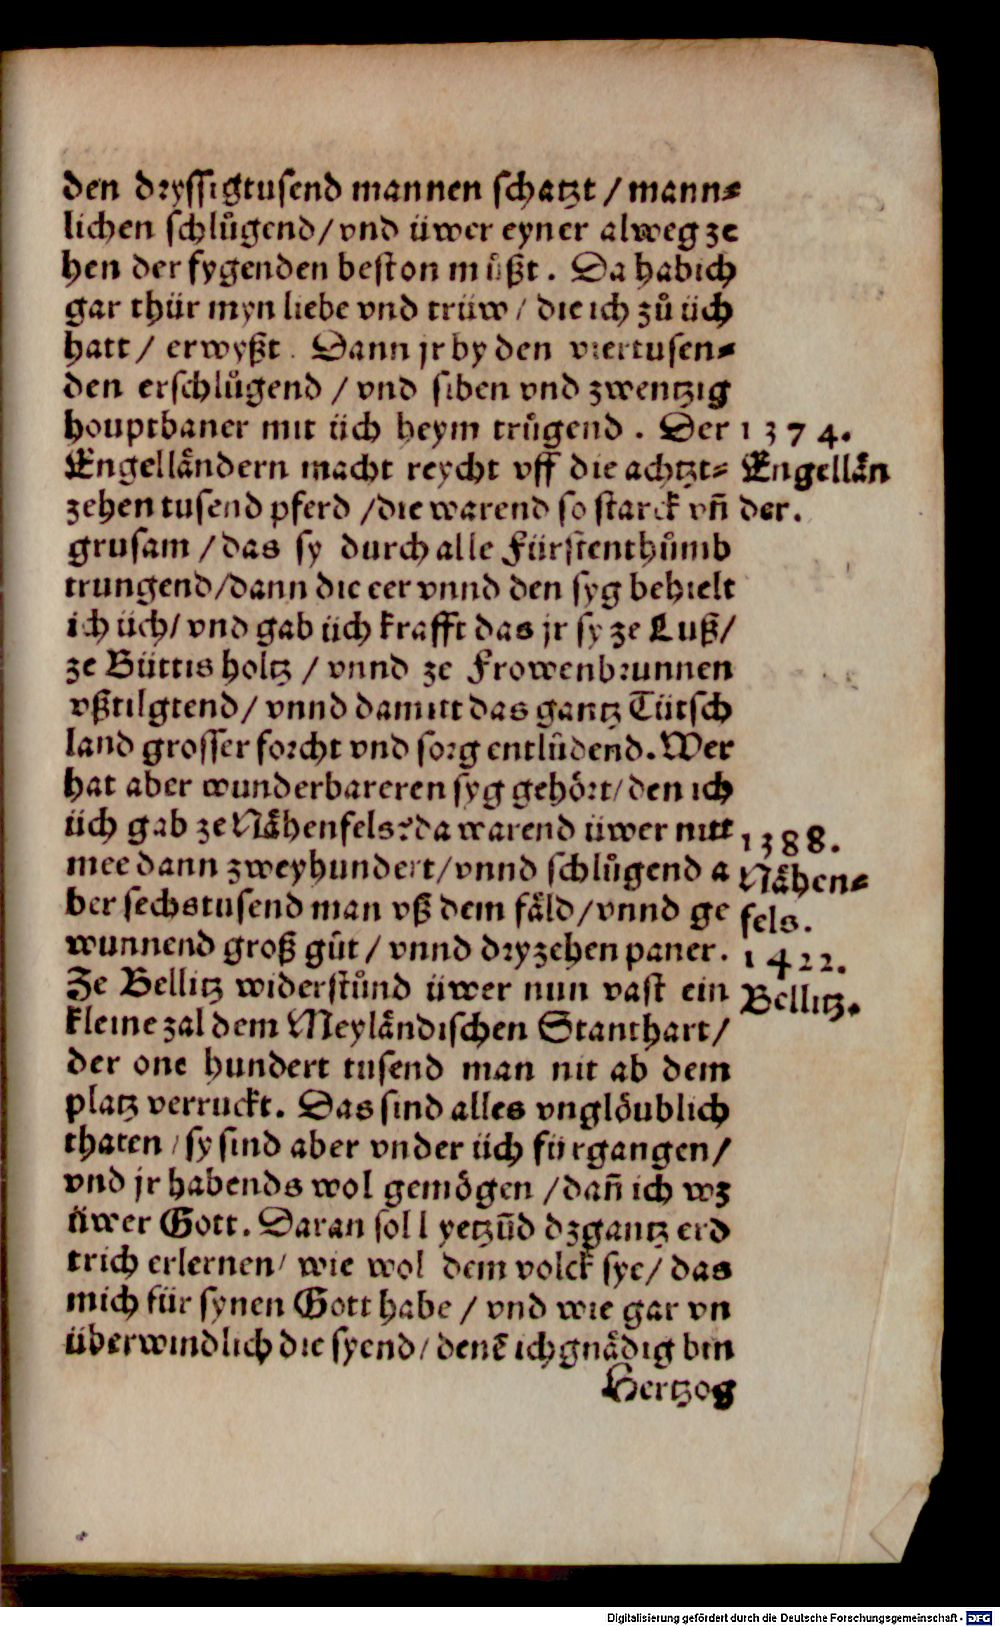 den dryssigtusend mannen schatzt / mann⸗
lichen schlůgend/ vnd üwer eyner alweg ze
hen der fygenden beston můßt. Da hab ich
gar thür myn liebe vnd trüw / die ich zů üch
hatt / erwyßt. Dann jr by den viertusen⸗
den erschlůgend / vnd siben vnd zwentzig
houptbaner mit üch heym trůgend. Der
Engelländern macht reycht vff die achtzt⸗
zehen tusend pferd /die warend so starck vñ
grusam /das sy durch alle Fürstenthůmb
trungend/dann die eer vnnd den syg behielt
ich üch/ vnd gab üch krafft das jr sy ze Luß/
ze Büttisholtz / vnnd ze Frowenbrunnen
vßtilgtend/ vnnd damitt das gantz Tütsch
land grosser forcht vnd sorg entlůdend. Wer
hat aber wunderbareren syg gehört/ den ich
üch gab ze Nähenfels? da warend üwer nitt
mee dann zweyhundert/ vnnd schlůgend a
ber sechstusend man vß dem fäld/ vnnd ge
wunnend groß gůt / vnnd dryzehen paner.
Ze Bellitz widerstůnd üwer nun vast ein
kleine zal dem Meyländischen Stanthart/
der one hundert tusend man nit ab dem
platz verruckt. Das sind alles vnglöublich
thaten / sy sind aber vnder üch fürgangen/
vnd jr habends wol gemögen /dañ ich wz
üwer Gott. Daran soll yetzūd dz gantz erd
trich erlernen/ wie wol dem volck sye/ das
mich für synen Gott habe / vnd wie gar vn
überwindlich die syend/ denē ich gnädig bin
Hertzog
1374.
Engellän
der.
1388.
Nähen⸗
fels.
1422.
Bellitz.
Digitalisierung gefördert durch die Deutsche Forschungsgemeinschaft - DFG